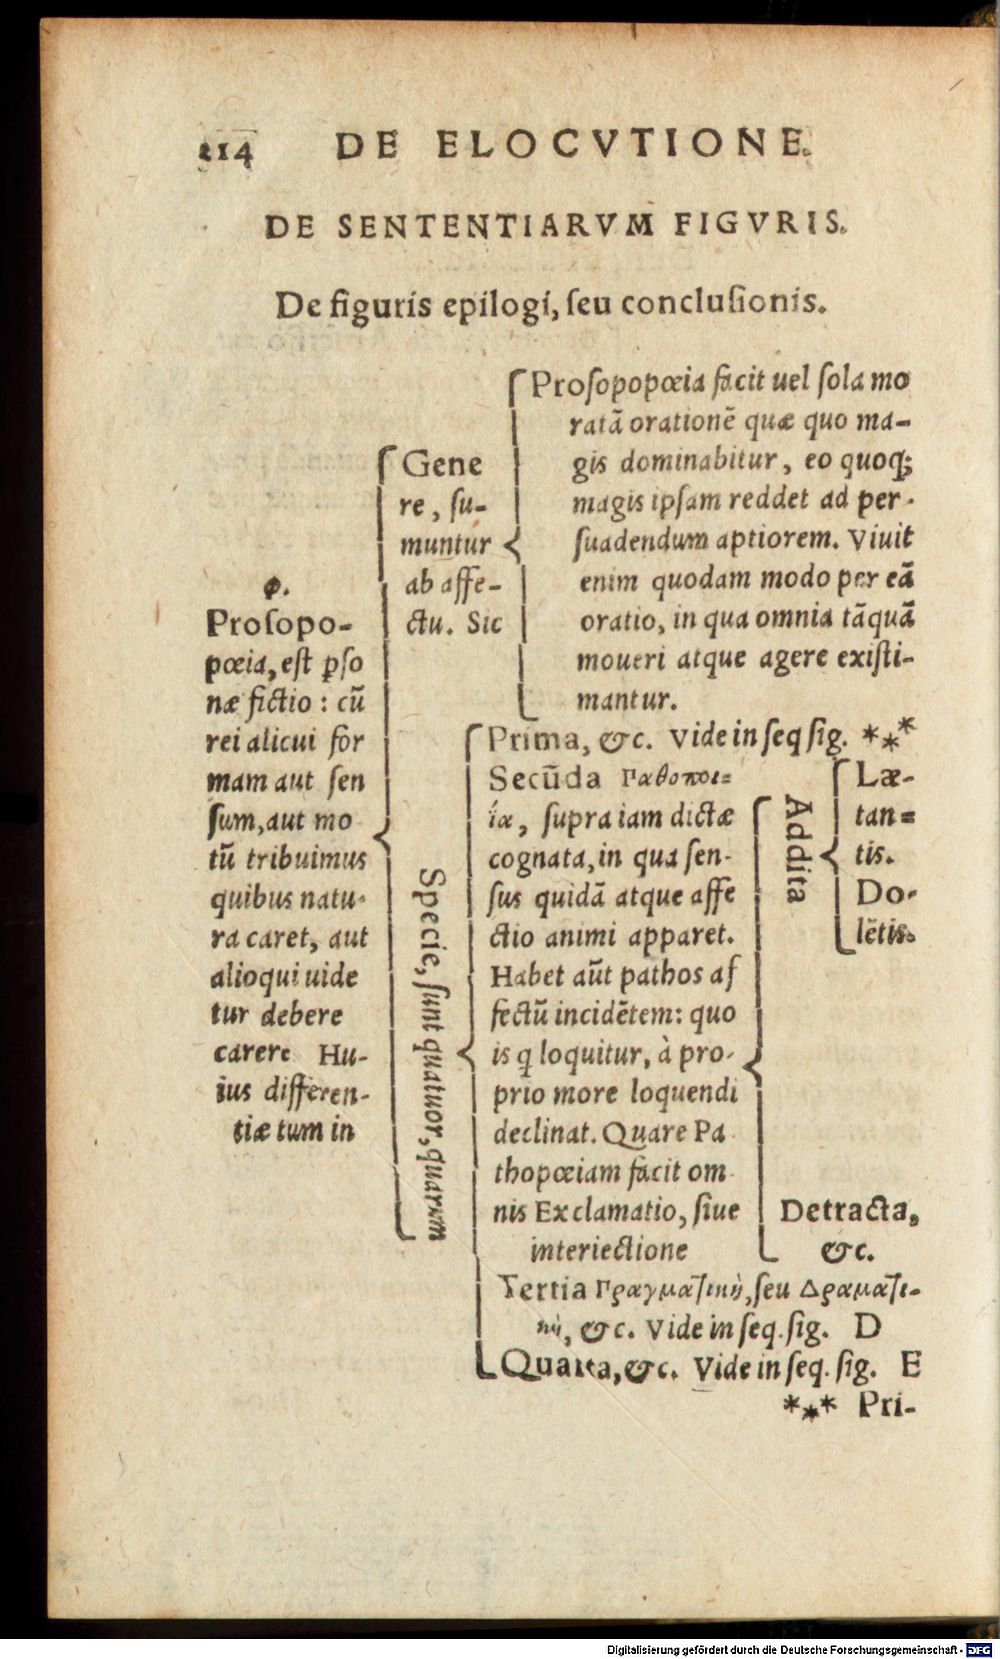 114 DE ELOCVTIONE.
DE SENTENTIARVM FIGVRIS.
De figuris epilogi, seu conclusionis.
φ.
Prosopo-
pœia, est ꝑso
næ fictio : cū
rei alicui for
mam aut sen
sum, aut mo
tū tribuimus
quibus natu-
ra caret, aut
alioqui uide
tur debere
carere Hu-
ius differen-
tiæ tum in
Gene
re, su-
muntur
ab affe-
ctu. Sic
Prosopopœia facit uel sola mo
ratā orationē quæ quo ma-
gis dominabitur, eo quoq;
magis ipsam reddet ad per-
suadendum aptiorem. Viuit
enim quodam modo per eā
oratio, in qua omnia tāquā
moueri atque agere existi-
mantur.
Specie, sunt quatuor, quarum
Prima, &c. Vide in seq sig. ***
Secūda Γαθοποι=
ία, supra iam dictæ
cognata, in qua sen-
sus quidā atque affe
ctio animi apparet.
Habet aūt pathos af
fectū incidētem: quo
is q loquitur, à pro-
prio more loquendi
declinat. Quare Pa
thopœiam facit om
nis Exclamatio, siue
interiectione
Addita
Læ-
tan=
tis.
Do-
lētis.
Detracta,
&c.
Tertia Γραγματικὴ, seu Δραματι-
κὴ, &c. Vide in seq. sig. D
Quarta, &c. Vide in seq. sig. E
*** Pri-
Digitalisierung gefördert durch die Deutsche Forschungsgemeinschaft - DFG